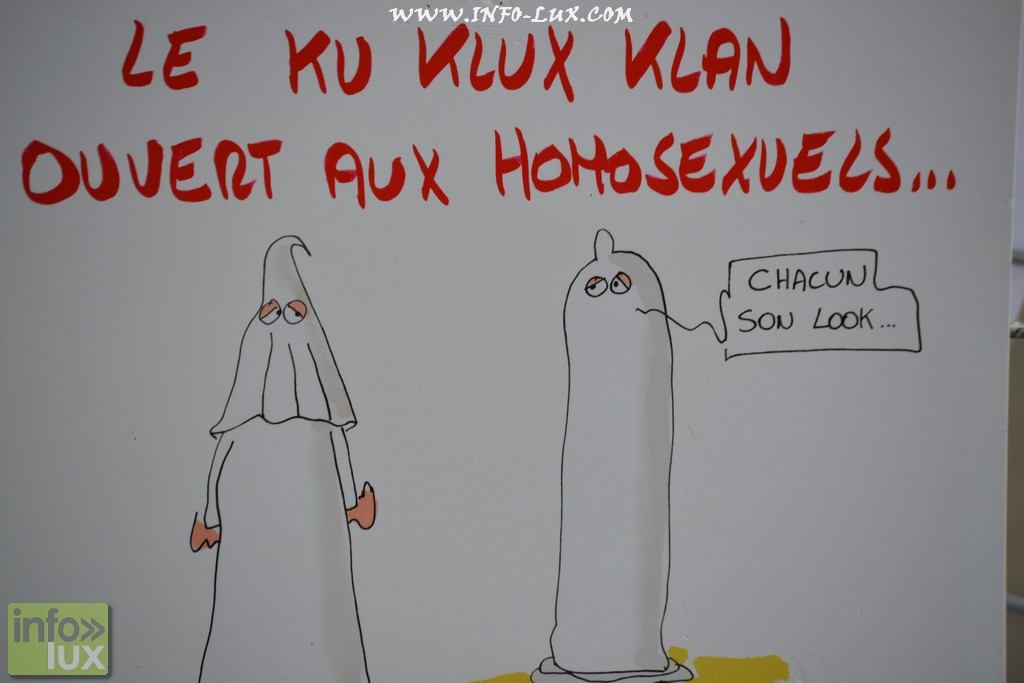 www.info-lux.com
LE KU KLUX KLAN
OUVERT AUX HOMOSEXUELS...
CHACUN
SON LOOK...
info»
lux